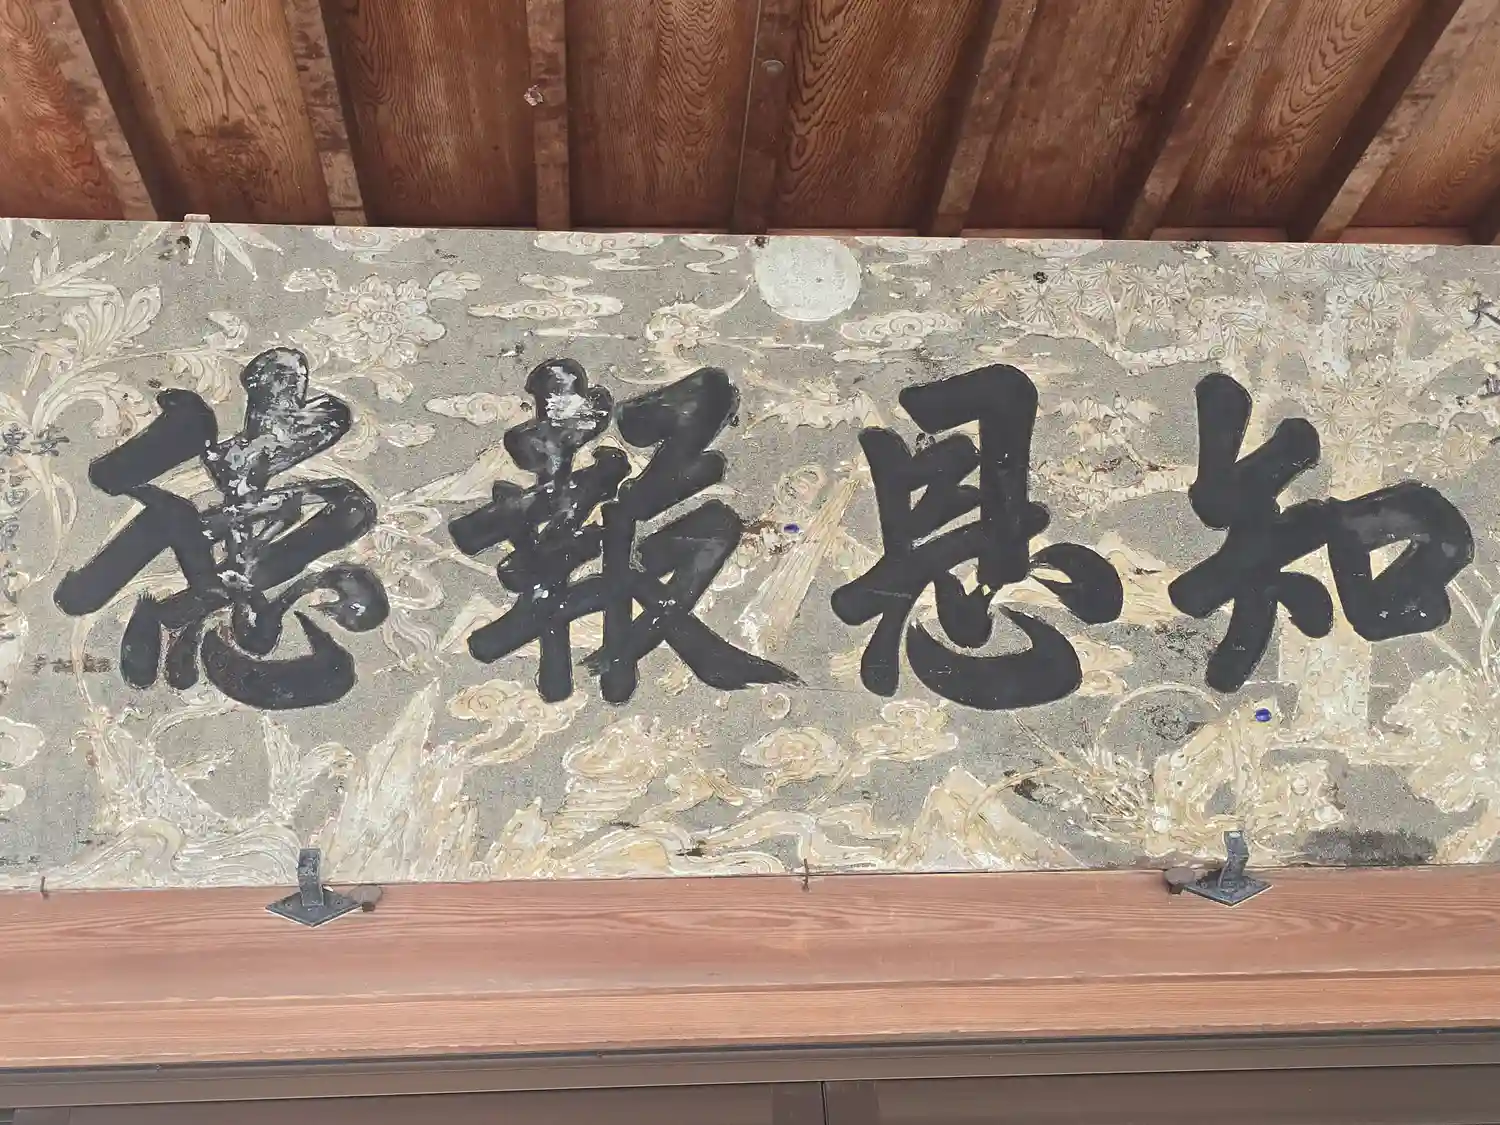 知恩報徳